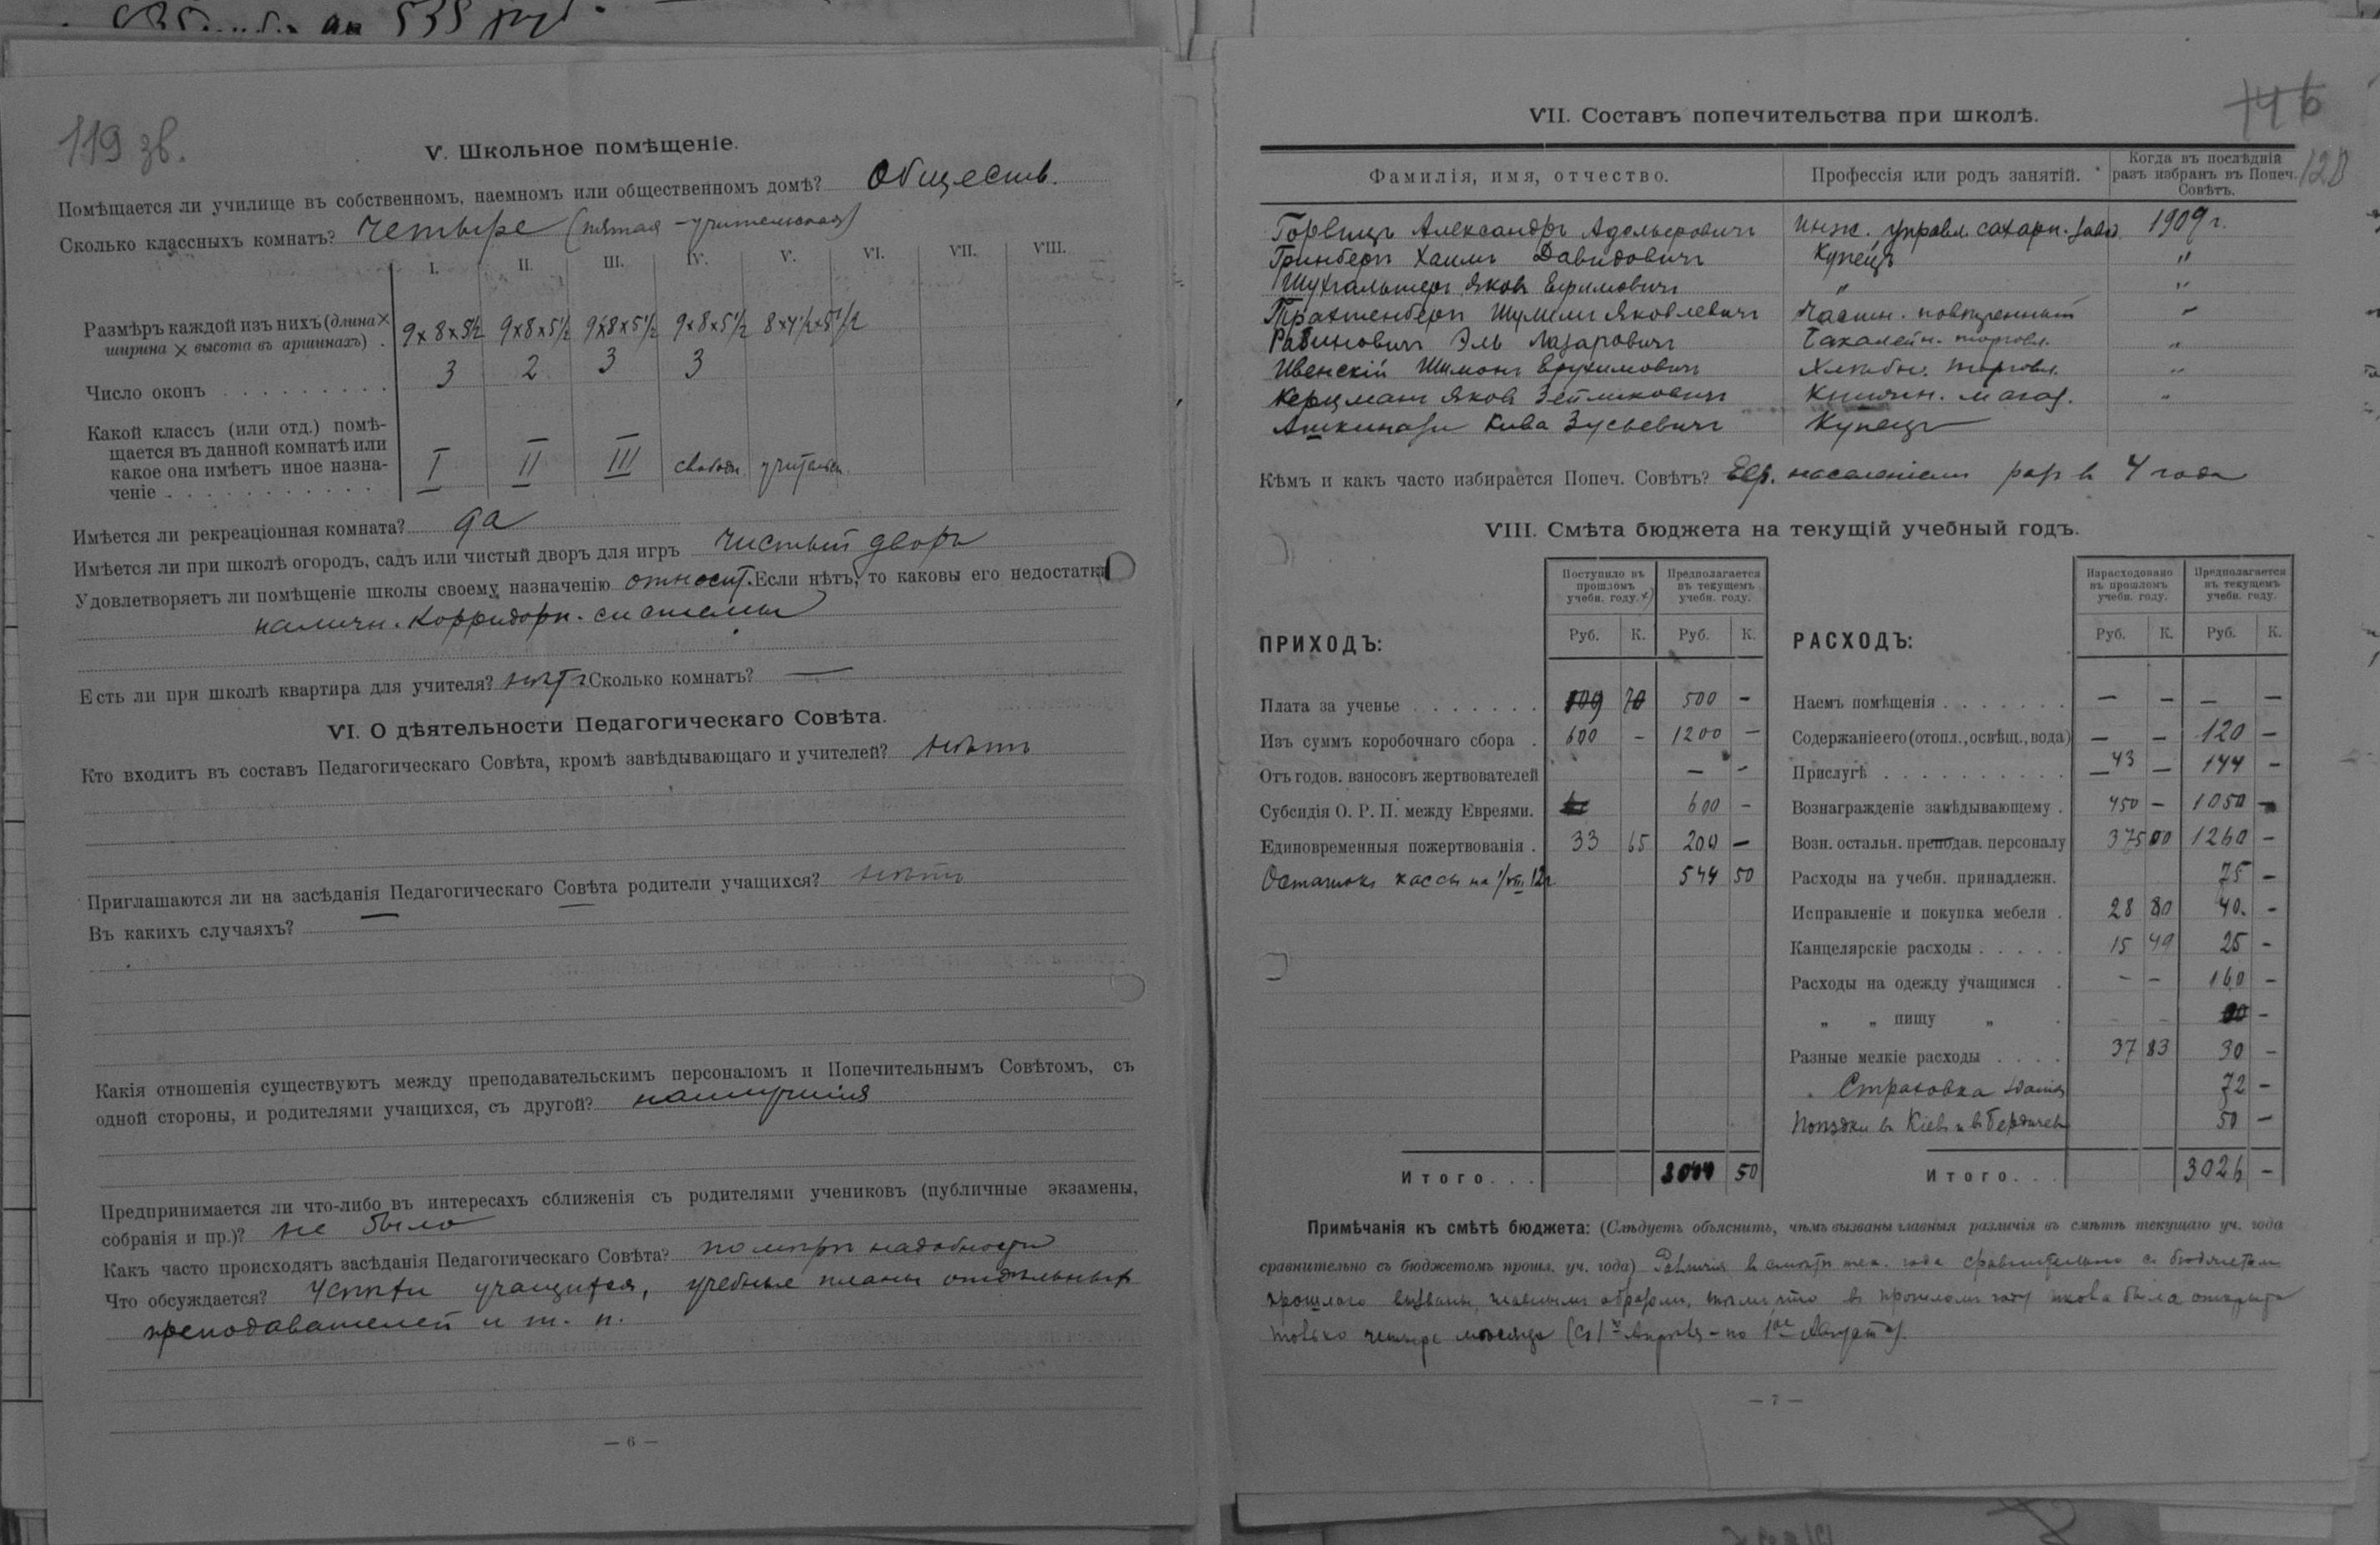 119 зв.
V. Школьное помѣщеніе.
Помѣщается ли училище въ собственномъ, наемномъ или общественномъ домѣ? Обществ.
Сколько классныхъ комнатъ? четыре (пятая - учительская)
I. II. III. IV. V. VI. VII. VIII.
Размѣръ каждой изъ нихъ (длина × ширина × высота въ аршинахъ) . 9×8×5½ 9×8×5½ 9×8×5½ 9×8×5½ 8×4½×5½
Число оконъ . . . . . . . . . 3 2 3 3
Какой классъ (или отд.) помѣ-
щается въ данной комнатѣ или
какое она имѣетъ иное назна-
ченіе . . . . . . . . . . . I II III свободн. учительск.
Имѣется ли рекреаціонная комната? да
Имѣется ли при школѣ огородъ, садъ или чистый дворъ для игръ чистый дворъ
Удовлетворяетъ ли помѣщеніе школы своему назначенію относит. Если нѣтъ, то каковы его недостатки
налична. Корридорн. системы
Есть ли при школѣ квартира для учителя? нѣтъ Сколько комнатъ? —
VI. О дѣятельности Педагогическаго Совѣта.
Кто входитъ въ составъ Педагогическаго Совѣта, кромѣ завѣдывающаго и учителей? никто
Приглашаются ли на засѣданія Педагогическаго Совѣта родители учащихся? нѣтъ
Въ какихъ случаяхъ? —
Какія отношенія существуютъ между преподавательскимъ персоналомъ и Попечительнымъ Совѣтомъ, съ
одной стороны, и родителями учащихся, съ другой? наилучшія
Предпринимается ли что-либо въ интересахъ сближенія съ родителями учениковъ (публичные экзамены,
собранія и пр.)? не было
Какъ часто происходятъ засѣданія Педагогическаго Совѣта? по мѣрѣ надобности
Что обсуждается? Успѣхи учащихся, учебные планы отдѣльныхъ
преподавателей и т. п.
— 6 —
VII. Составъ попечительства при школѣ.
120
Фамилія, имя, отчество. Профессія или родъ занятій. Когда въ послѣдній разъ избранъ въ Попеч. Совѣтъ.
Горвицъ Александръ Адольфовичъ Инж. управл. сахарн. завод. 1909 г.
Гринбергъ Хаимъ Давидовичъ Купецъ "
Шухгальтеръ Яковъ Ефимовичъ " "
Трахтенбергъ Шулимъ Яковлевичъ Частн. повѣренный "
Рабиновичъ Эль Лазаровичъ Бакалейн. торговл. "
Ивенскій Шимонъ Ерухимовичъ Хлѣбн. торговл. "
Керцманъ Яковъ Зейликовичъ Книжн. магаз. "
Ашкинази Кива Зусьевичъ Купецъ
Кѣмъ и какъ часто избирается Попеч. Совѣтъ? Евр. населеніемъ разъ в 4 года
VIII. Смѣта бюджета на текущій учебный годъ.
ПРИХОДЪ: Поступило въ прошломъ учебн. году. ×) Предполагается въ текущемъ учебн. году.
Руб. К. Руб. К.
Плата за ученье . . . . . . . 109 70 500 —
Изъ суммъ коробочнаго сбора . 600 — 1200 —
Отъ годов. взносовъ жертвователей — —
Субсидія О. Р. П. между Евреями. 600 —
Единовременныя пожертвованія . 33 65 200 —
Остатокъ кассы на 1/VIII 12г. 544 50
Итого. . . 3044 50
РАСХОДЪ: Израсходовано въ прошломъ учебн. году. Предполагается въ текущемъ учебн. году.
Руб. К. Руб. К.
Наемъ помѣщенія . . . . . . . — — — —
Содержаніе его (отопл., освѣщ., вода) — — 120 —
Прислугѣ . . . . . . . . . . 43 — 144 —
Вознагражденіе завѣдывающему . 450 — 1050 —
Возн. остальн. преподав. персоналу 375 00 1260 —
Расходы на учебн. принадлежн. 75 —
Исправленіе и покупка мебели . 28 80 40. —
Канцелярскіе расходы . . . . . 15 49 25 —
Расходы на одежду учащимся . — — 160 —
" " пищу " . —
Разные мелкіе расходы . . . . 37 83 30 —
Страховка зданія 72 —
Поѣздки въ Кіевъ и въ Бердичевъ 50 —
Итого. . . 3026 —
Примѣчанія къ смѣтѣ бюджета: (Слѣдуетъ объяснить, чѣмъ вызваны главныя различія въ смѣтѣ текущаго уч. года
сравнительно съ бюджетомъ прошл. уч. года) Различія в смѣтѣ тек. года сравнительно съ бюджетомъ
прошлаго вызваны, главнымъ образомъ, тѣмъ, что въ прошломъ году школа была открыта
только четыре мѣсяца (съ 1го Апрѣля - по 1ое Августа).
— 7 —